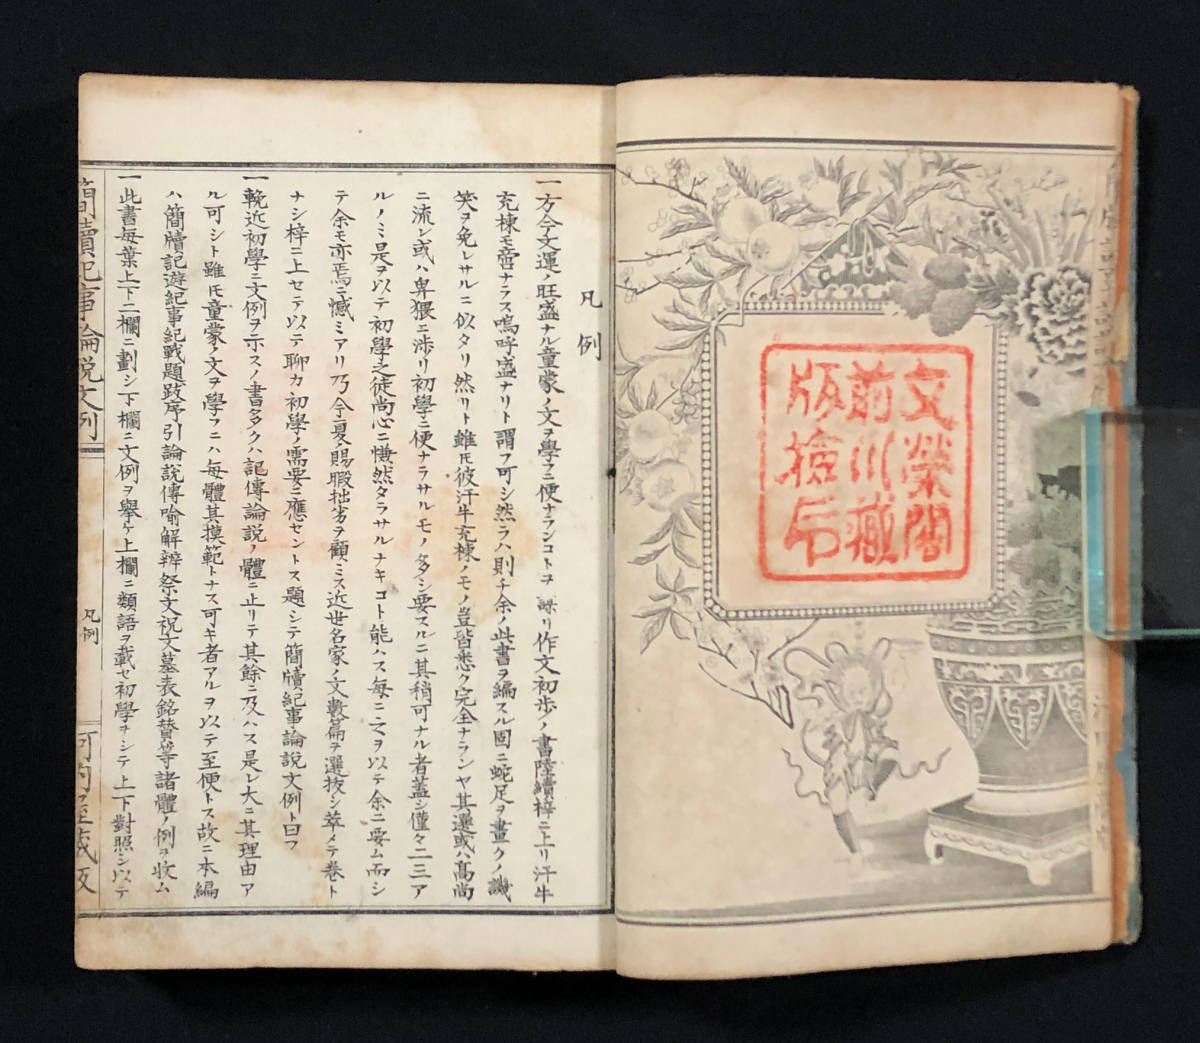 文榮閣
前川藏
版撿印
凡例
一方今文運ノ旺盛ナル童蒙ノ文ヲ學フニ便ナランコトヲ 謀リ作文初歩ノ書陸續梓ニ上リ汗牛
充棟モ啻ナラス嗚呼盛ナリト謂フ可シ然ラハ則チ余ノ此書ヲ編スル固ニ蛇足ヲ畫クノ譏
笑ヲ免レサルニ似タリ然リト雖𪜈彼汗牛充棟ノモノ豈皆悉ク完全ナランヤ其選或ハ髙尚
ニ流レ或ハ卑猥ニ渉リ初學ニ便ナラサルモノ多シ要スルニ其稍可ナル者蓋シ僅々二三ア
ルノミ是ヲ以テ初學之徒尚心ニ慊然タラサルナキコト能ハス毎ニ之ヲ以テ余ニ要ム而シ
テ余モ亦焉ニ憾ミアリ乃今夏賜暇拙劣ヲ顧ミス近世名家ノ文數篇ヲ選抜シ萃メテ巻ト
ナシ梓ニ上セテ以テ聊カ初學ノ需要ニ應セントス題シテ簡牘紀事論説文例ト曰フ
一輓近初學ニ文例ヲ示スノ書多クハ記傳論説ノ體ニ止リテ其餘ニ及ハス是レ大ニ其理由ア
ル可シト雖𪜈童蒙ノ文ヲ學フニハ毎體其摸範トナス可キ者アルヲ以テ至便トス故ニ本編
ハ簡牘記遊紀事紀戰題跋序引論説傳喻解辨祭文祝文墓表銘賛等諸體ノ例ヲ收ム
一此書毎葉上下二欄ニ劃シ下欄ニ文例ヲ擧ケ上欄ニ類語ヲ載セ初學ヲシテ上下對照シ以テ
簡牘紀事論説文例
凡例